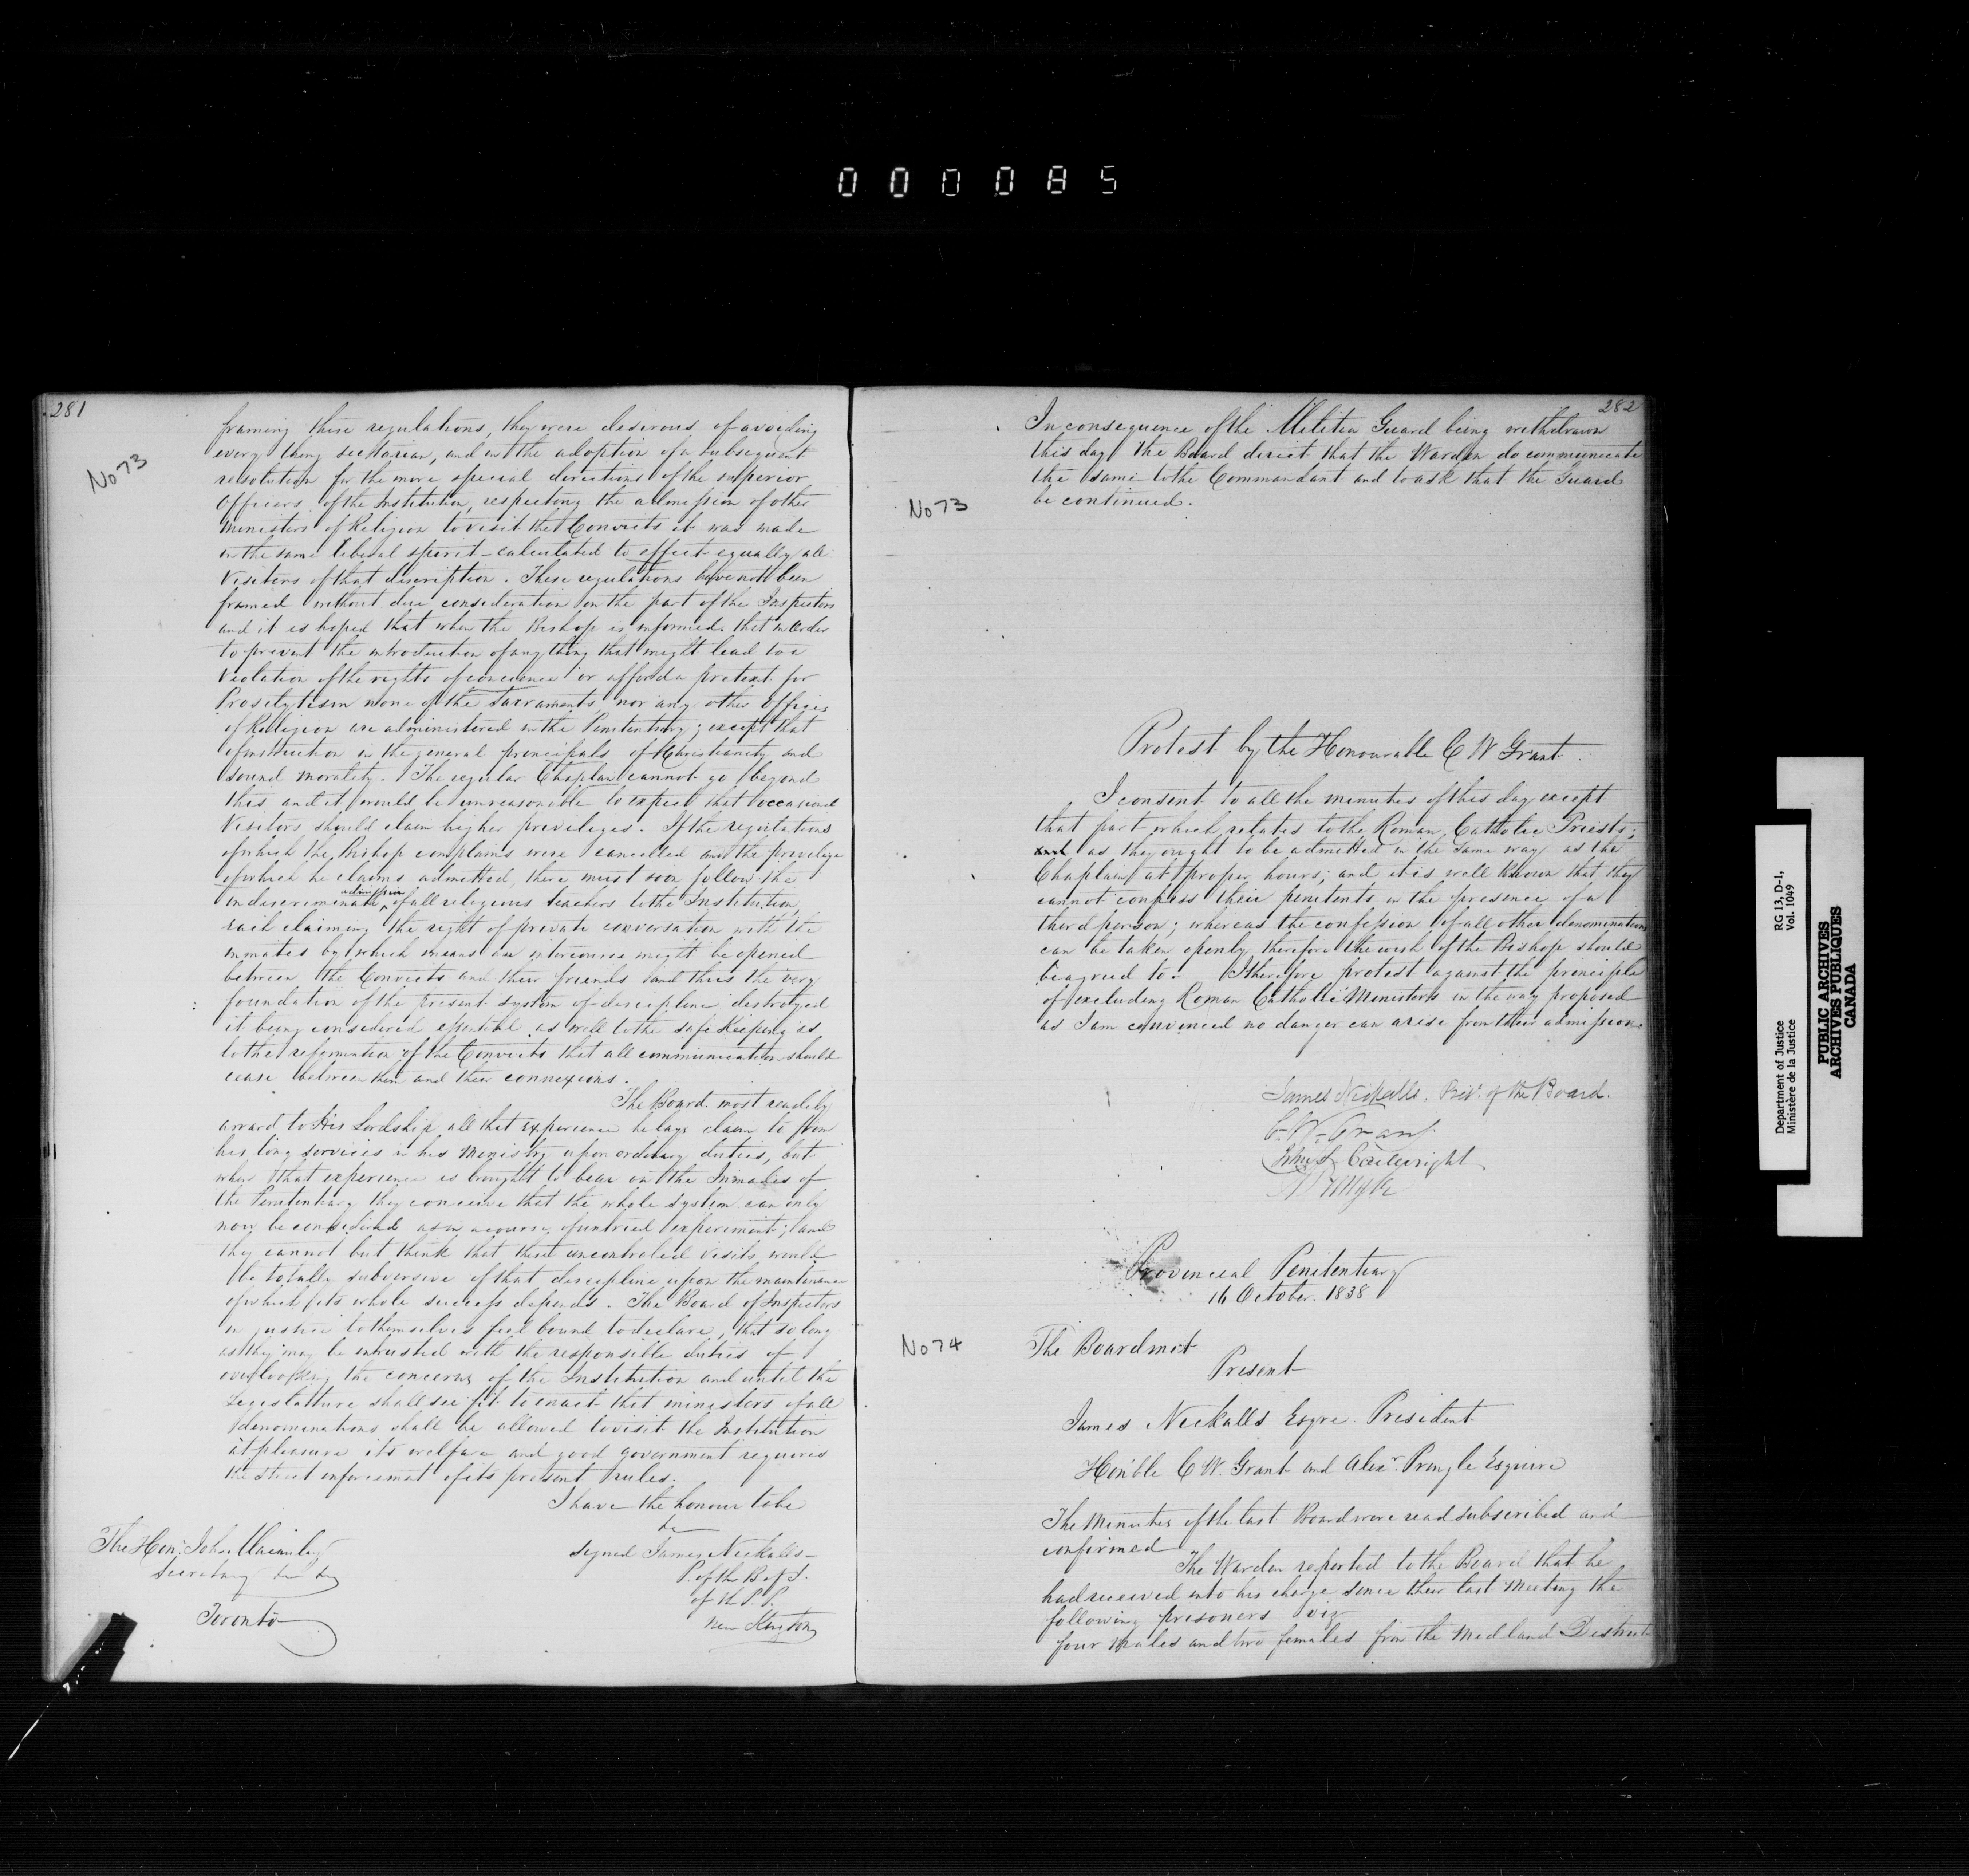 000085
281
No 73
framing these regulations, they were desirous of avoiding
every thing sectarian, and in the adoption of a subsequent
resolution for the more special directions of the superior
Officers of the Institution, respecting the admission of other
Ministers of Religion to visit the Convicts it was made
in the same liberal spirit - calculated to effect equally all
Visitors of that discription. These regulations have not been
framed without due consideration on the part of the Inspectors
and it is hoped that when the Bishop is informed that in order
to prevent the introduction of any thing that might lead to a
Violation of the rights of concience or afford a pretext for
Proselytism none of the Sacraments, nor any other Offices
of Religion are administered in the Penitentiary; except that
of instruction in the general principals of Christianity and
sound morality. The regular Chaplain cannot go beyond
this and it would be unreasonable to expect that occasional
Visitors should claim higher privileges. If the regulations
of which the Bishop complains were cancelled and the privilege
of which he claims admitted, there must soon follow the
indiscriminate admission of all religious teachers to the Institution,
each claiming the right of private conversation with the
inmates by which means an intercourse might be opened
between the Convicts and their friends and thus the very
foundation of the present system of discipline destroyed
it being considered essential as well to the safe Keeping as
to the reformation of the Convicts that all communication should
cease between them and their connexions.
The Board most readily
award to His Lordship all that experience he lays claim to from
his long services in his Ministry upon ordinary duties, but
when that experience is brought to bear on the Inmates of
the Penitentiary they conceive that the whole system can only
now be considered as in a course of untried experiment; and
they cannot but think that these uncontroled visits would
be totally subversive of that discipline upon the maintenance
of which its whole success depends. The Board of Inspectors
in justice to themselves feel bound to declare, that so long
as they may be intrusted with the responsible duties of
overlooking the concerns of the Institution and until the
Legislature shall see fit to enact that ministers of all
denominations shall be allowed to visit the Institution
at pleasure its welfare and good government requires
the strict enforcement of its present rules.
I have the honour to be
&c
The Hon. John Macaulay
Secretary &c &c
Toronto
signed James Nickalls
P. of the B of I.
of the P. P.
near Kingston
282
In consequence of the Militia Guard being withdrawn
this day the Board direct that the Warden do communicate
the same to the Commandant and to ask that the Guard
be continued.
No 73
Protest by the Honourable C W Grant.
I consent to all the minutes of this day except
that part which relates to the Roman Catholic Priests;
as they ought to be admitted in the same way as the
Chaplain at proper hours; and it is well known that they
cannot confess their penitents in the presence of a
third person; whereas the confession of all other denominations
can be taken openly therefore the wish of the Bishop should
be agreed to. I therefore protest against the principle
of excluding Roman Catholic Ministers in the way proposed
as I am convinced no danger can arise from their admission.
James Nickalls, Prest. of the Board.
C. W. Grant
John S. Cartwright
Provincial Penitentiary
16 October. 1838
No 74
The Board met
Present
James Nickalls Esqre President
Honble C W. Grant and Alexr. Pringle Esquire
The Minutes of the last Board were read subscribed and
confirmed
The Warden reported to the Board that he
had received into his charge since their last Meeting the
following prisoners viz
four Males and two females from the Medland District
Department of Justice
Ministère de la Justice
RG 13, D-1,
Vol. 1049
PUBLIC ARCHIVES
ARCHIVES PUBLIQUES
CANADA